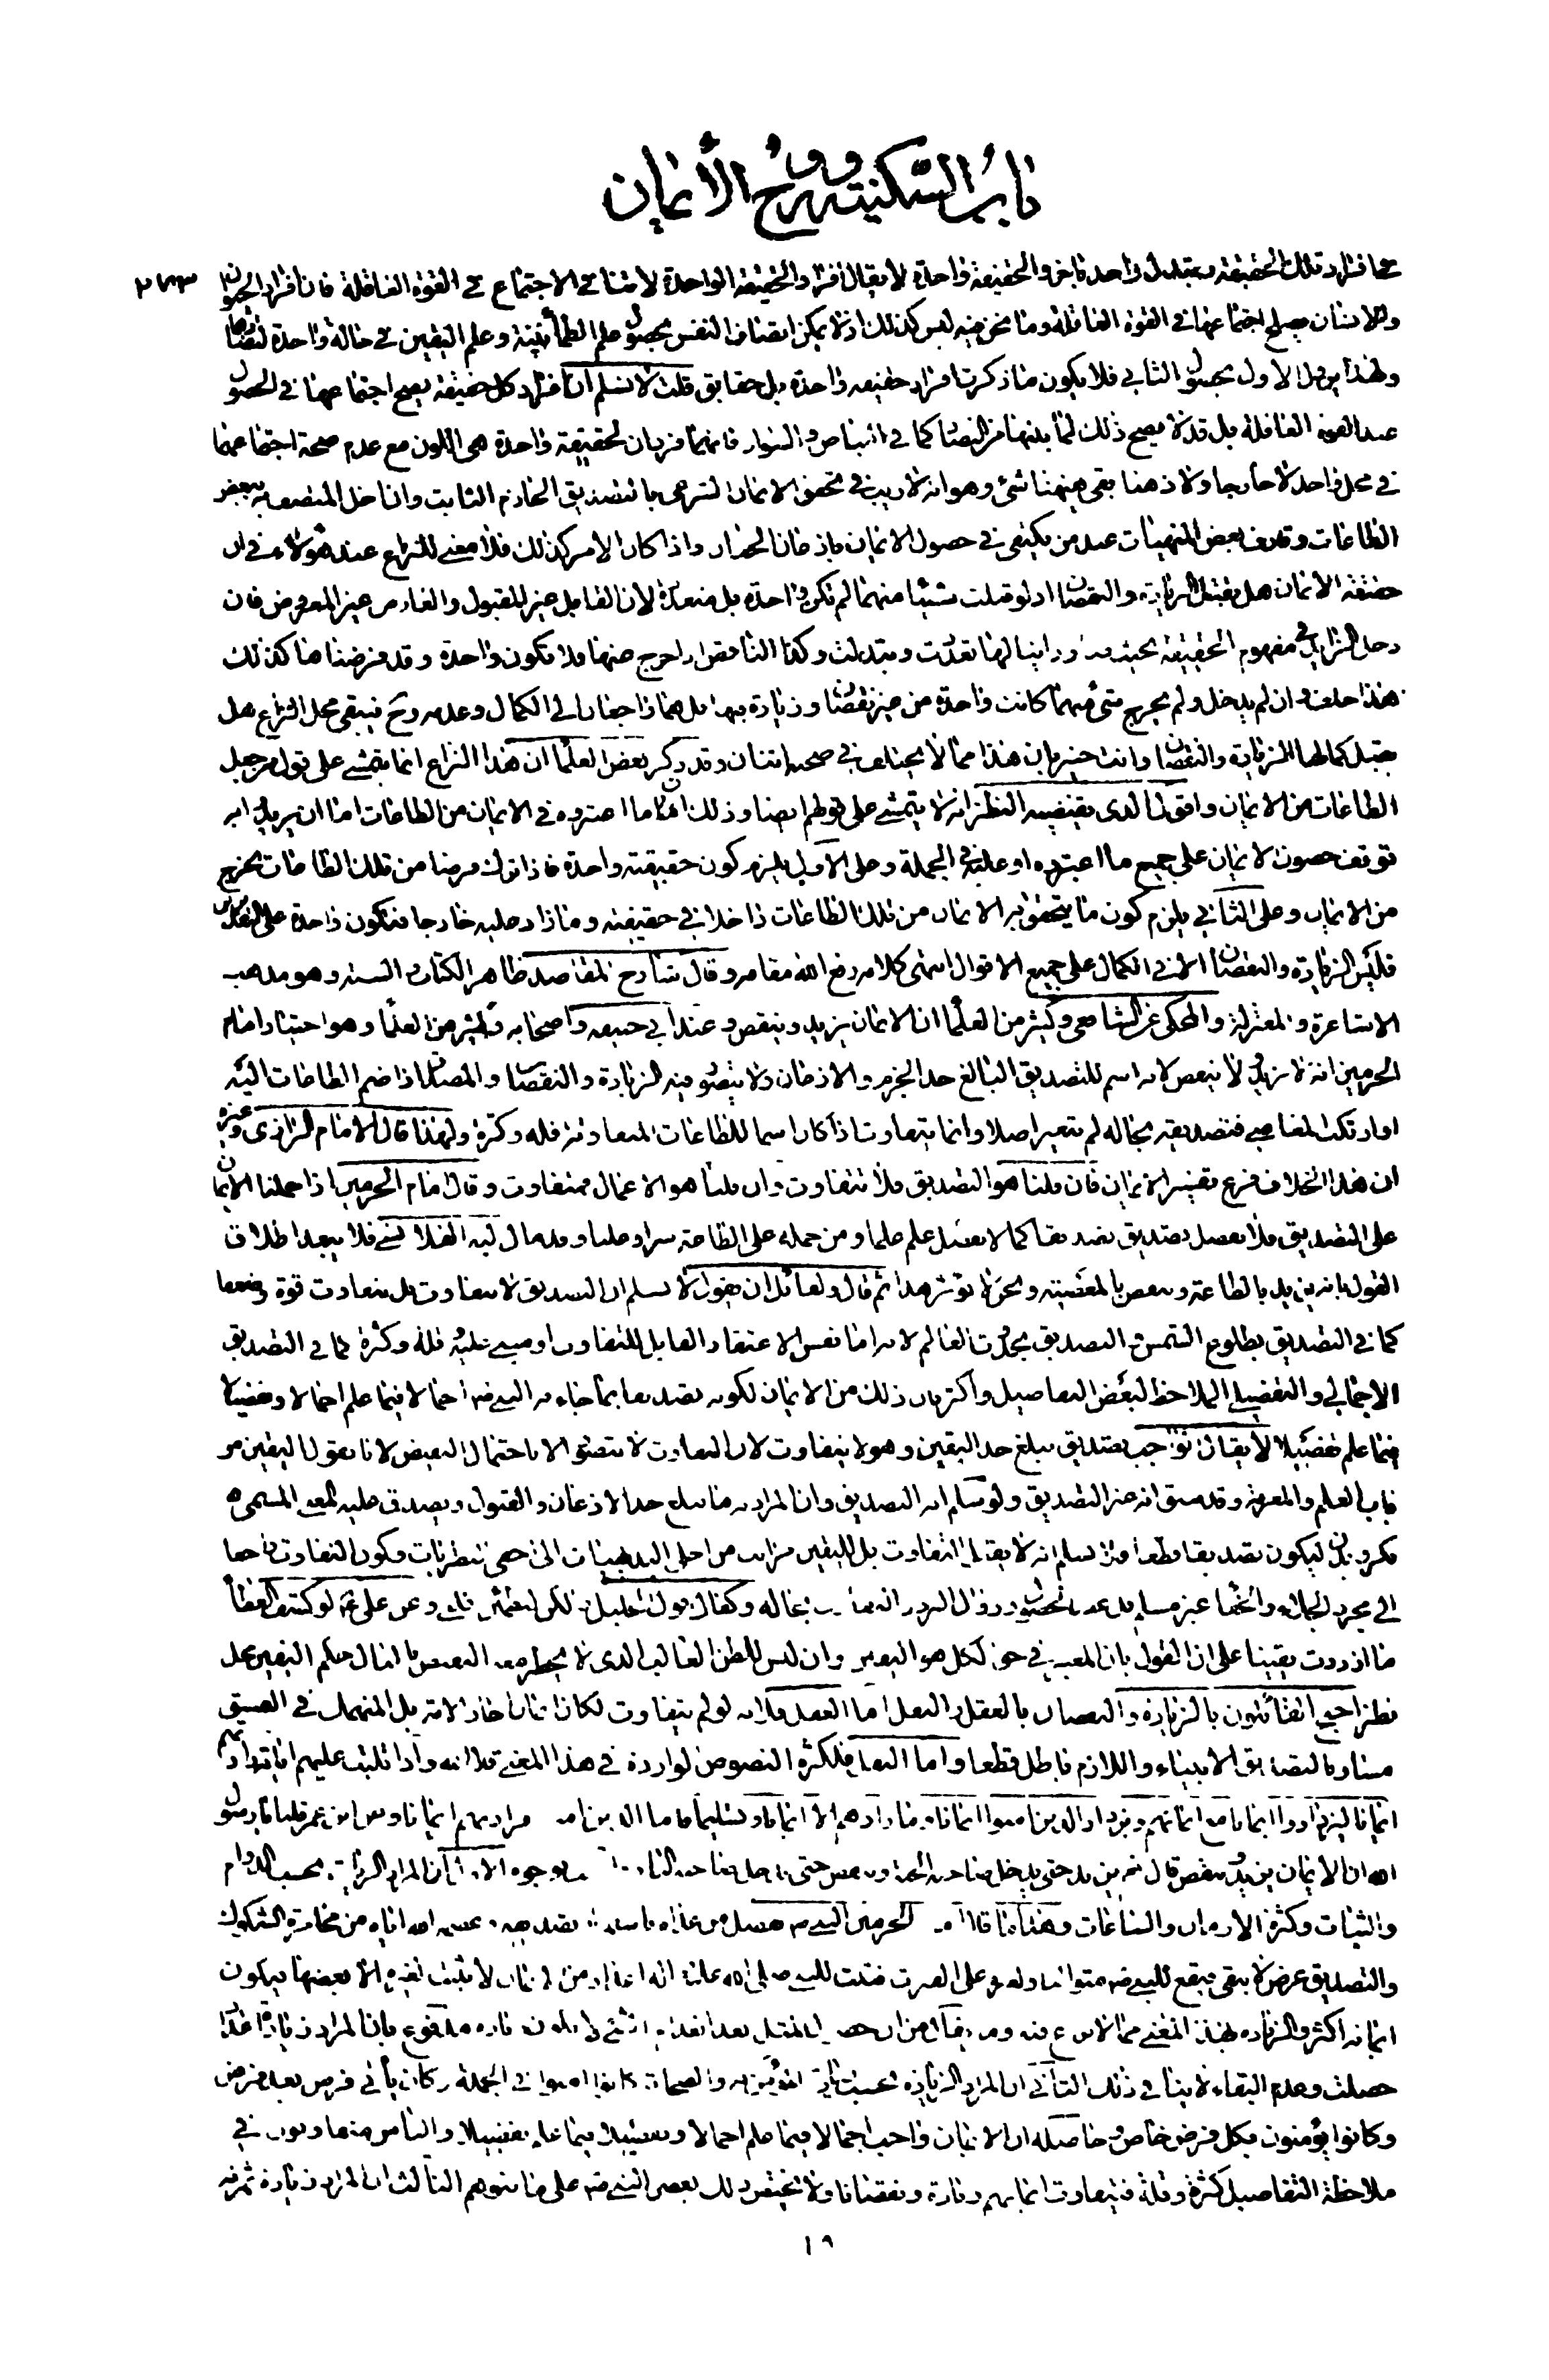 باب السكينة وروح الأيمان
٢٧٣
على افراد تلك الحقيقة وتبدل واحد باخر والحقيقة واحدة لا يقال افراد الحقيقة الواحدة لا تنافي الاجتماع في القوة العاقلة فان افراد الحيوان
والانسان يصح اجتماعها في القوة العاقلة وما نحن فيه ليس كذلك اذ لا يمكن اتصاف النفس بحصول علم الطمأنينة وعلم اليقين في حالة واحدة لتضادها
ولهذا يزول الاول بحصول الثاني فلا يكون ما ذكرت افراد حقيقة واحدة بل حقايق قلت لا نسلم ان افراد كل حقيقة يصح اجتماعها في الحصول
عند القوة العاقلة بل قد لا يصح ذلك لما بينهما من التضاد كما في البياض والسواد فانهما فردان لحقيقة واحدة هي اللون مع عدم صحة اجتماعهما
في محل واحد لا خارجا ولا ذهنا بقى هيهنا شئ وهو انه لا ريب في تحقق الايمان الشرعي بالتصديق الجازم الثابت وان اخل المتصف به ببعض
الطاعات وقارف بعض المنهيات عند من يكتفي في حصول الايمان باذعان الجنان واذا كان الامر كذلك فلا معنى للنزاع عند هؤلاء في ان
حقيقة الايمان هل تقبل الزيادة والنقصان اذ لو قبلت شيئا منهما لم تكن واحدة بل متعددة لان القابل غير المقبول والعارض غير المعروض فان
دخل الزايد في مفهوم الحقيقة بحيث صار ذاتيا لها تعددت وتبدلت وكذا الناقص اذا خرج عنها فلا تكون واحدة وقد فرضناها كذلك
هذا خلف وان لم يدخل ولم يخرج شئ منهما كانت واحدة من غير نقصان وزيادة فيها بل هما راجعان الى الكمال وعدمه وح فيبقى محل النزاع هل
تقبل كمالها الزيادة والنقصان وانت خبير بان هذا مما لا يختلف في صحته اثنان وقد ذكر بعض العلما ان هذا النزاع انما يتمشى على قول من جعل
الطاعات من الايمان واقول الذي يقتضيه النظر انه لا يتمشى على قولهم ايضا وذلك ان ما اعتبروه في الايمان من الطاعات اما ان يريدوا به
توقف حصول الايمان على جميع ما اعتبروه او عليه في الجملة وعلى الاول يلزم كون حقيقته واحدة فاذا ترك فرضا من تلك الطاعات يخرج
من الايمان وعلى الثاني يلزم كون ما يتحقق به الايمان من تلك الطاعات داخلا في حقيقته وما زاد عليه خارجا فتكون واحدة على التقديرين
فليس الزيادة والنقصان الا في الكمال على جميع الاقوال انتهى كلامه رفع الله مقامه وقال شارح المقاصد ظاهر الكتاب والسنة وهو مذهب
الاشاعرة والمعتزلة والمحكى عن الشافعي وكثير من العلما ان الايمان يزيد وينقص وعند ابي حنيفة واصحابه وكثير من العلما وهو اختيار امام
الحرمين انه لا يزيد ولا ينقص لانه اسم للتصديق البالغ حد الجزم والاذعان ولا يتصور فيه الزيادة والنقصان والمصدق اذا ضم الطاعات اليه
او ارتكب المعاصي فتصديقه بحاله لم يتغير اصلا وانما يتفاوت اذا كان اسما للطاعات المتفاوتة قلة وكثرة ولهذا قال الامام الرازي وغيره
ان هذا الخلاف فرع تفسير الايمان فان قلنا هو التصديق فلا تتفاوت وان قلنا هو الاعمال فمتفاوت وقال امام الحرمين اذا حملنا الايمان
على التصديق فلا يفضل تصديق تصديقا كما لا يفضل علم علما ومن حمله على الطاعة سرا وعلنا وقد مال اليه القلانسي فلا يبعد اطلاق
القول بانه يزيد بالطاعة وينقص بالمعصية ونحن لا نؤثر هذا ثم قال ولقائل ان يقول لا نسلم ان التصديق لا يتفاوت بل يتفاوت قوة وضعفا
كما في التصديق بطلوع الشمس والتصديق بحدوث العالم لانه اما نفس الاعتقاد القابل للتفاوت او مبني عليه قلة وكثرة كما في التصديق
الاجمالي والتفصيلي الملاحظ لبعض التفاصيل واكثر فان ذلك من الايمان لكونه تصديقا بما جاء به النبي ص اجمالا فيما علم اجمالا وتفصيلا
فيما علم تفصيلا لا يقال الواجب تصديق يبلغ حد اليقين وهو لا يتفاوت لان التفاوت لا يتصور الا باحتمال النقيض لانا نقول اليقين من
باب العلم والمعرفة وقد سبق انه غير التصديق ولو سلم انه التصديق وان المراد به ما يبلغ حد الاذعان والقبول ويصدق عليه المعنى المسمى
بكرويدن ليكون تصديقا قطعا فلا نسلم انه لا يقبل التفاوت بل لليقين مراتب من اجلى البديهيات الى اخفى النظريات وكون التفاوت راجعا
الى مجرد الجلاء والخفا غير مسلم بل عند الحصول وزوال التردد التفاوت بحاله وكفاك قول الخليل ولكن ليطمئن قلبي وعن علي ع لو كشف الغطأ
ما ازددت يقينا على ان القول بان المعتبر في حق الكل هو اليقين وان ليس للظن الغالب الذي لا يخطر معه النقيض بالبال حكم اليقين محل
نظر احتج القائلون بالزيادة والنقصان بالعقل والنقل اما العقل فلانه لو لم يتفاوت لكان ايمان احاد الامة بل المنهمك في الفسق
مساويا لتصديق الانبياء واللازم باطل قطعا واما النقل فلكثرة النصوص الواردة في هذا المعنى قال الله واذا تليت عليهم اياته زادتهم
ايمانا ليزدادوا ايمانا مع ايمانهم ويزداد الذين امنوا ايمانا وما زادهم الا ايمانا وتسليما فاما الذين امنوا فزادتهم ايمانا وعن ابن عمر قلنا يا رسول
الله ان الايمان يزيد وينقص قال نعم يزيد حتى يدخل صاحبه الجنة وينقص حتى يدخل صاحبه النار بوجوه الاول ان المراد الزيادة بحسب الدوام
والثبات وكثرة الازمان والساعات وهذا ما قاله امام الحرمين النبي ص يفضل من عداه باستمرار تصديقه وعصمة الله اياه من مخامرة الشكوك
والتصديق عرض لا يبقى فيقع للنبي ص متواليا ولغيره على الفترات فثبت للنبي صلى الله عليه اله اعداد من الايمان لا يثبت لغيره الا بعضها فيكون
ايمانه اكثر والزيادة بهذا المعنى مما لا نزاع فيه وما يقال من ان حصول المثل بعد انعدام الشئ لا يكون زيادة مدفوع بان المراد زيادة اعداد
حصلت وعدم البقاء لا ينافي ذلك الثاني ان المراد الزيادة بحسب زيادة المؤمن به والصحابة كانوا امنوا في الجملة وكان يأتي فرض بعد فرض
وكانوا يؤمنون بكل فرض خاص وحاصله ان الايمان واجب اجمالا فيما علم اجمالا وتفصيلا فيما علم تفصيلا والناس متفاوتون في
ملاحظة التفاصيل كثرة وقلة فيتفاوت ايمانهم زيادة ونقصانا ولا يختص ذلك بعصر النبي ص على ما يتوهم الثالث ان المراد زيادة ثمرته
١٩